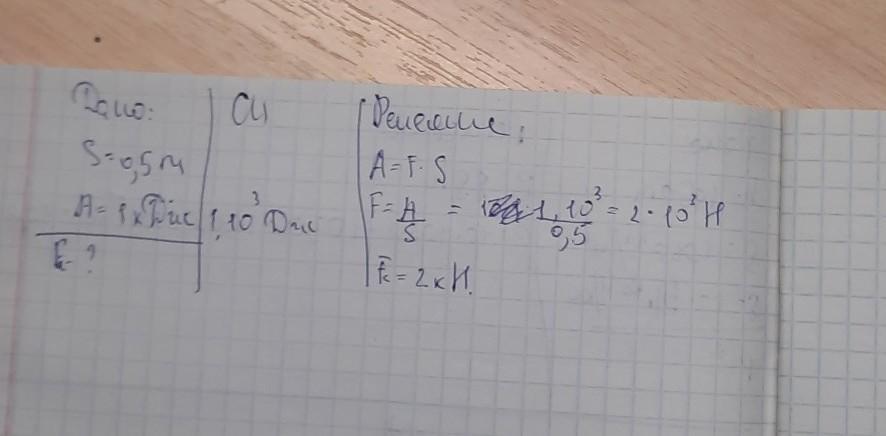 Дано:
S=0,5м
A=1кДж
F-?
СИ
1·10³ Дж
Решение:
A=F·S
F=A/S = 1·10³/0,5 = 2·10³ Н
F=2кН.